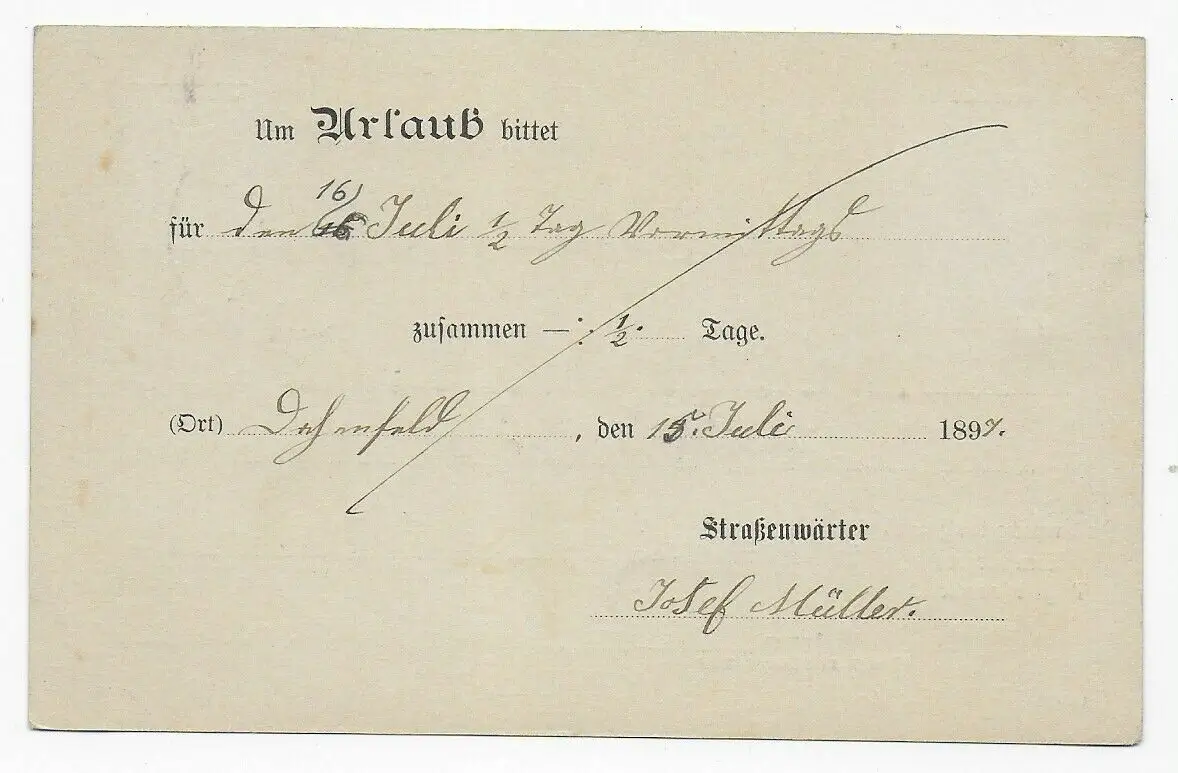 Um Urlaub bittet
16
für den 16 Juli ½ Tag Vormittags
zusammen —: ½. Tage.
(Ort) Dahenfeld, den 15. Juli 1897.
Straßenwärter
Josef Müller.